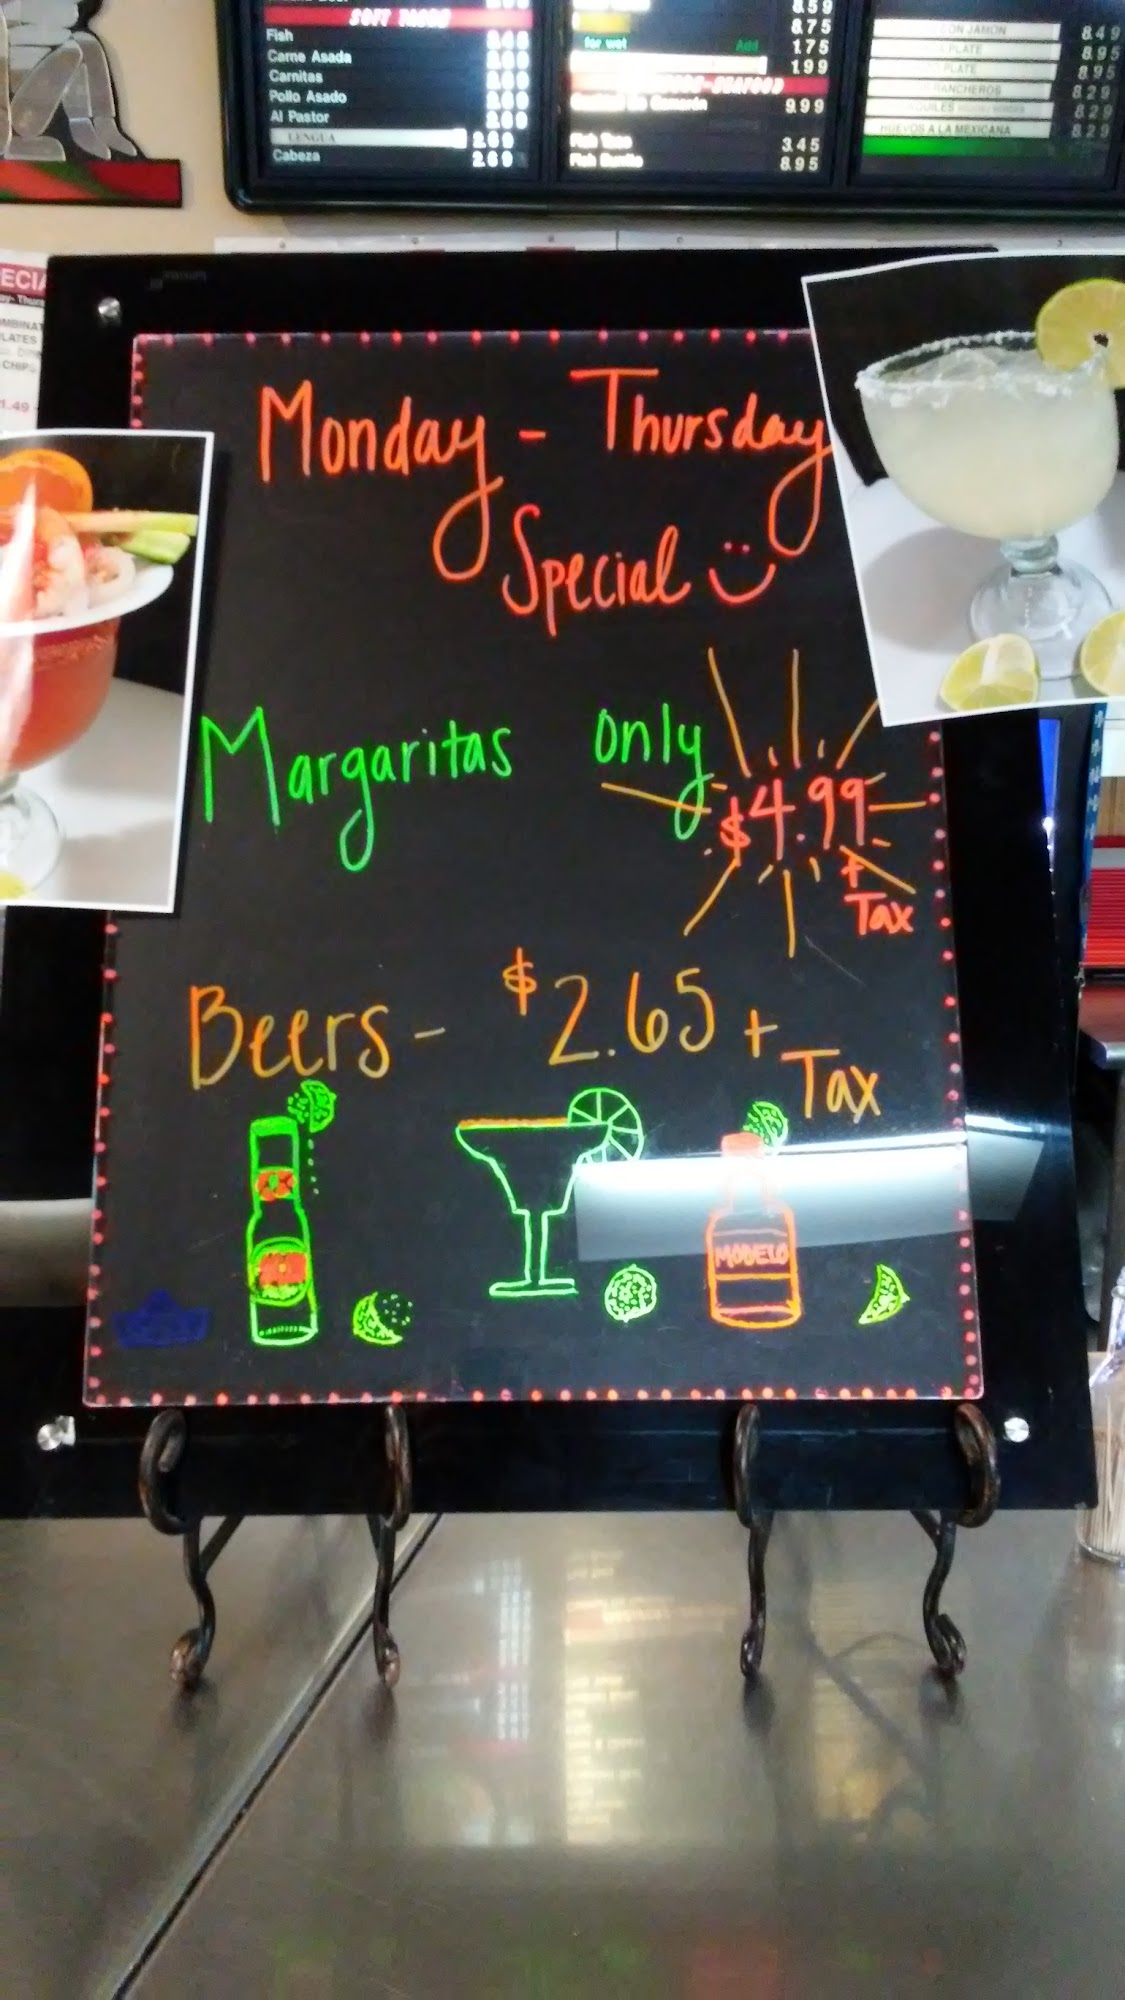 SOFT TACOS
Fish
Carne Asada
Carnitas
Pollo Asado
Al Pastor
LENGUA 2.69
Cabeza 2.69
8.59
8.75
for wet Add 1.75
1.99
9.99
Fish Taco 3.45
Fish Burrito 8.95
CON JAMON 8.49
PLATE 8.95
PLATE 8.95
RANCHEROS 8.29
8.29
HUEVOS A LA MEXICANA 8.29
Monday - Thursday
Special
Margaritas only
$4.99
+
Tax
Beers - $2.65 +
Tax
MODELO
1.49